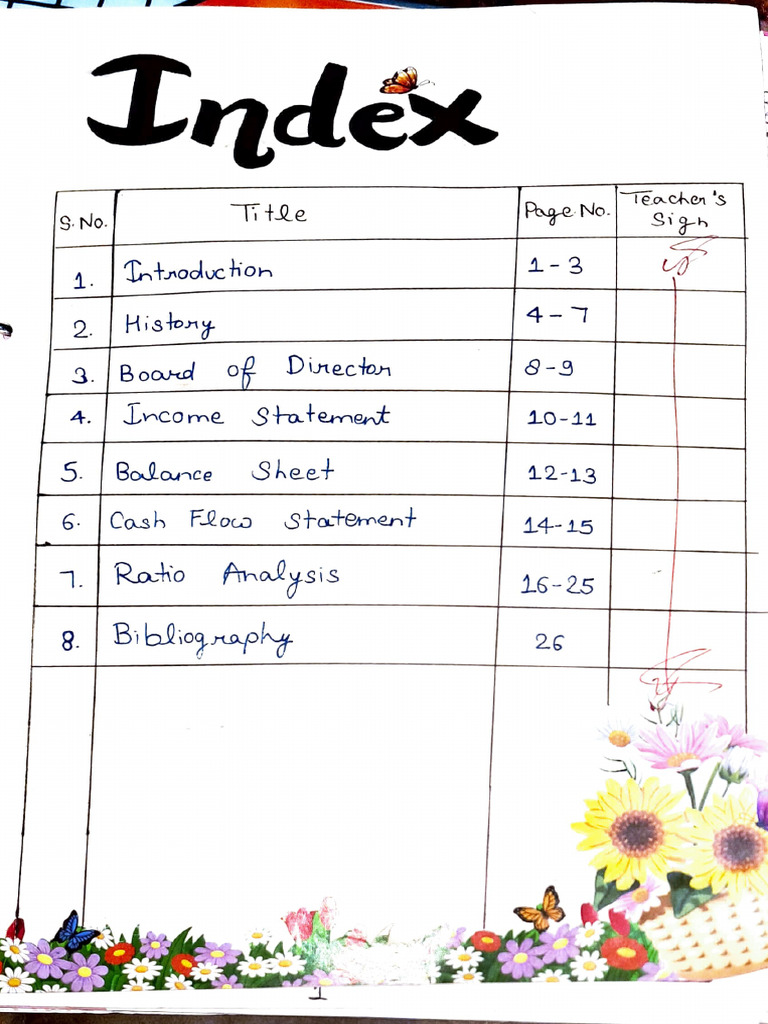 Index
S. No. Title Page No. Teacher's Sign
1. Introduction 1-3
2. History 4-7
3. Board of Director 8-9
4. Income Statement 10-11
5. Balance Sheet 12-13
6. Cash Flow Statement 14-15
7. Ratio Analysis 16-25
8. Bibliography 26
1